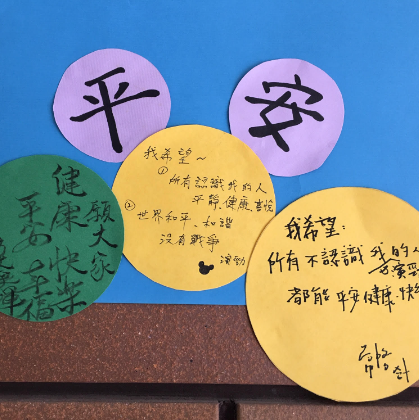 平
安
我希望~
①
所有認識我的人
平靜、健康、喜悅
②世界和平、和諧
沒有戰爭
願大家
健康快樂
平安幸福
我希望:
所有不認識我的人
都能平安健康、快